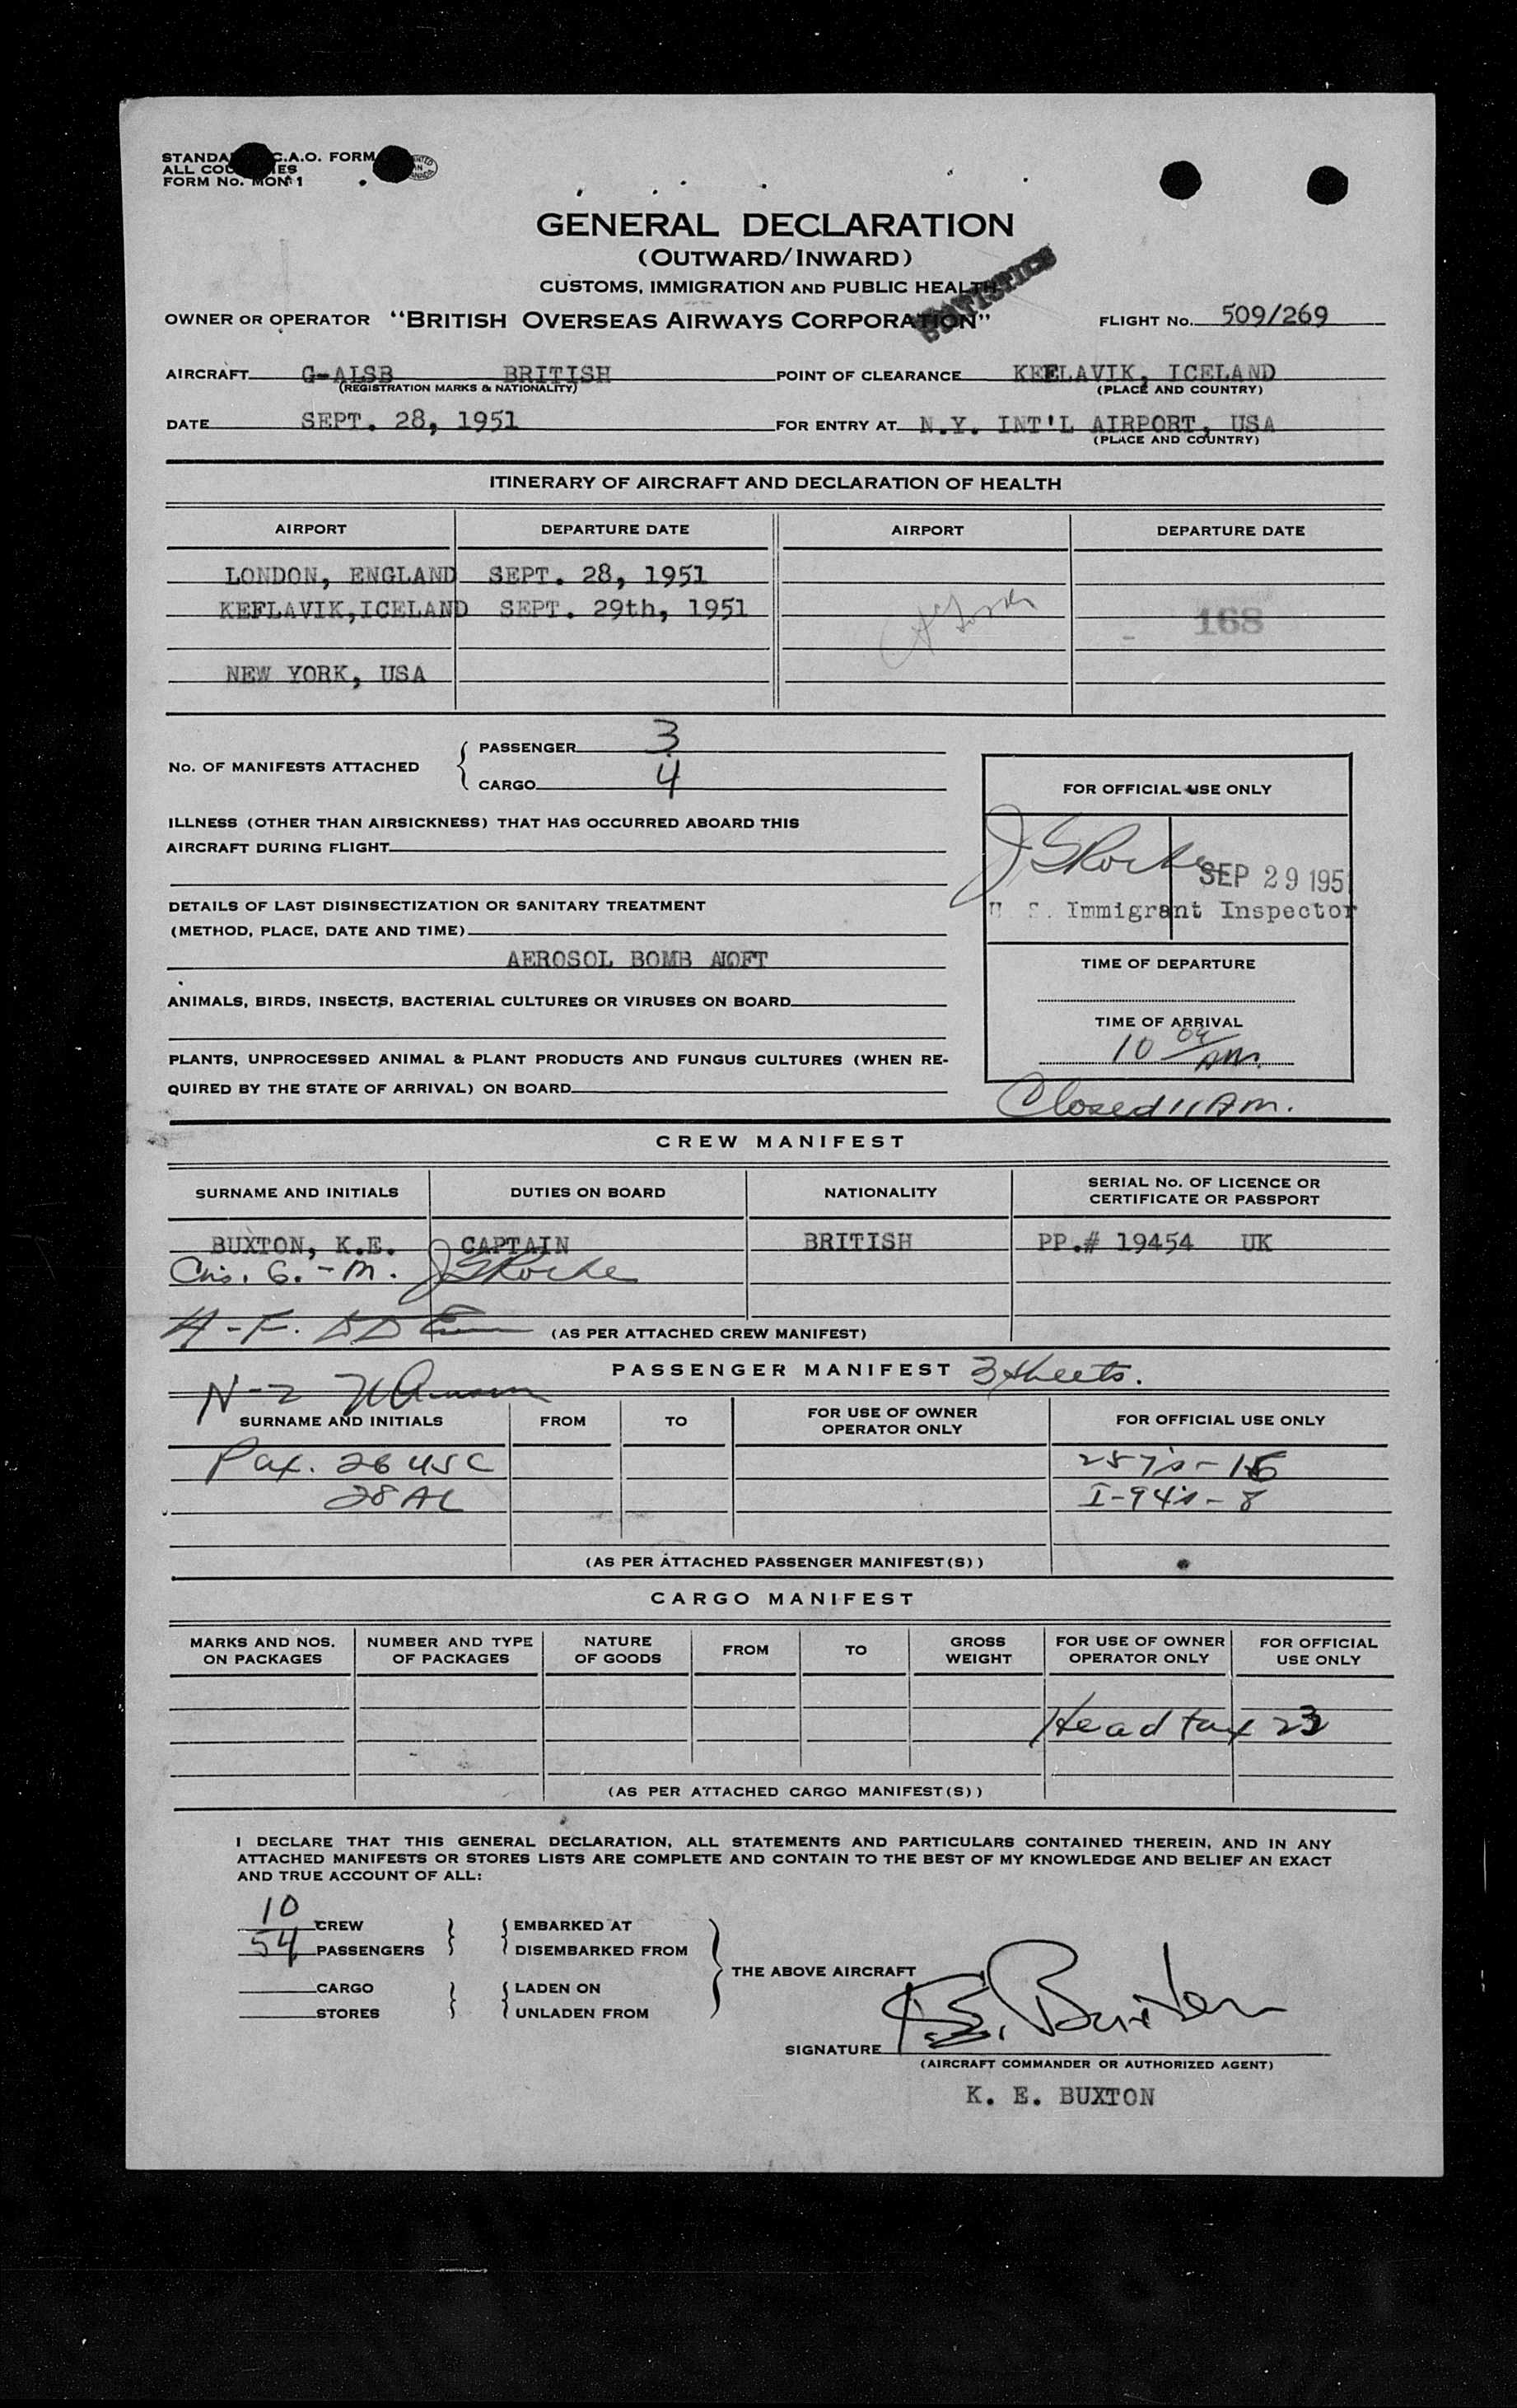 STANDA C.A.O. FORM
ALL COU IES
FORM No. MON 1
PRINTED IN CANADA
GENERAL DECLARATION
(OUTWARD/INWARD)
CUSTOMS, IMMIGRATION AND PUBLIC HEALTH
STATISTICS
OWNER OR OPERATOR "BRITISH OVERSEAS AIRWAYS CORPORATION" FLIGHT No. 509/269
AIRCRAFT G-ALSB BRITISH POINT OF CLEARANCE KEFLAVIK, ICELAND
(REGISTRATION MARKS & NATIONALITY) (PLACE AND COUNTRY)
DATE SEPT. 28, 1951 FOR ENTRY AT N.Y. INT'L AIRPORT, USA
(PLACE AND COUNTRY)
ITINERARY OF AIRCRAFT AND DECLARATION OF HEALTH
AIRPORT DEPARTURE DATE AIRPORT DEPARTURE DATE
LONDON, ENGLAND SEPT. 28, 1951
KEFLAVIK, ICELAND SEPT. 29th, 1951 168
NEW YORK, USA
No. OF MANIFESTS ATTACHED { PASSENGER 3
CARGO 4
FOR OFFICIAL USE ONLY
ILLNESS (OTHER THAN AIRSICKNESS) THAT HAS OCCURRED ABOARD THIS
AIRCRAFT DURING FLIGHT
SEP 29 195
U. S. Immigrant Inspector
DETAILS OF LAST DISINSECTIZATION OR SANITARY TREATMENT
(METHOD, PLACE, DATE AND TIME)
AEROSOL BOMB ALOFT
TIME OF DEPARTURE
ANIMALS, BIRDS, INSECTS, BACTERIAL CULTURES OR VIRUSES ON BOARD
TIME OF ARRIVAL
10 04 AM.
PLANTS, UNPROCESSED ANIMAL & PLANT PRODUCTS AND FUNGUS CULTURES (WHEN RE-
QUIRED BY THE STATE OF ARRIVAL) ON BOARD
Closed 11 AM.
CREW MANIFEST
SURNAME AND INITIALS DUTIES ON BOARD NATIONALITY SERIAL No. OF LICENCE OR
CERTIFICATE OR PASSPORT
BUXTON, K.E. CAPTAIN BRITISH PP.# 19454 UK
G. - M. JSRorke
A - F.
(AS PER ATTACHED CREW MANIFEST)
PASSENGER MANIFEST 3 sheets.
N-Z
SURNAME AND INITIALS FROM TO FOR USE OF OWNER
OPERATOR ONLY FOR OFFICIAL USE ONLY
Pax. 26 USC 257's - 15
28 AL I-94's - 8
(AS PER ATTACHED PASSENGER MANIFEST(S))
CARGO MANIFEST
MARKS AND NOS.
ON PACKAGES NUMBER AND TYPE
OF PACKAGES NATURE
OF GOODS FROM TO GROSS
WEIGHT FOR USE OF OWNER
OPERATOR ONLY FOR OFFICIAL
USE ONLY
Head tax 23
(AS PER ATTACHED CARGO MANIFEST(S))
I DECLARE THAT THIS GENERAL DECLARATION, ALL STATEMENTS AND PARTICULARS CONTAINED THEREIN, AND IN ANY
ATTACHED MANIFESTS OR STORES LISTS ARE COMPLETE AND CONTAIN TO THE BEST OF MY KNOWLEDGE AND BELIEF AN EXACT
AND TRUE ACCOUNT OF ALL:
10 CREW } { EMBARKED AT
54 PASSENGERS } { DISEMBARKED FROM
THE ABOVE AIRCRAFT
CARGO } { LADEN ON
STORES } { UNLADEN FROM
SIGNATURE K.E. Buxton
(AIRCRAFT COMMANDER OR AUTHORIZED AGENT)
K. E. BUXTON